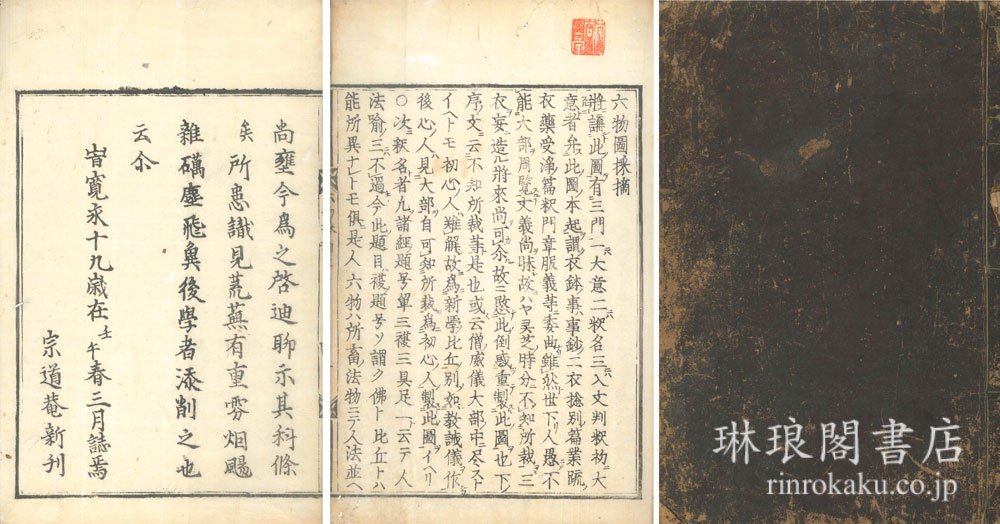 尚壅今為之啓迪聊示其科條
矣所患識見荒蕪有重雰烟颺
雜礪塵飛與後學者添削之也
云尒
旹寛永十九歳在壬午春三月誌焉
宗道菴新刊
六物圖採摘
將講此圖有三門一大意二釈名三入文判釈初大
意者允此圖本起謂衣鉢事事鈔二衣捴別篇業疏
衣藥受淨篇釈門章服義等委曲雖然世下人愚不
能大部周覧文義尚昧故ハヤ灵芝時分不知所裁三
衣妄造ル將來尚可余故三愍此倒感重製此圖也下
序文云不知所裁等是也或云僧威儀大部中尽スト
イヘトモ初心人難解故為新學比丘別如教誡儀作
後心人見大部自可知所裁為初心人製此圖イヘリ
○次釈名者凡諸經題号單三複三具足一云テ人
法喩三不過今此題目複題号ソ謂ク佛ト比丘トハ
能所異ナレトモ倶是人六物ハ所畜法物ニテ人法並ヘ
琳琅閣書店
rinrokaku.co.jp